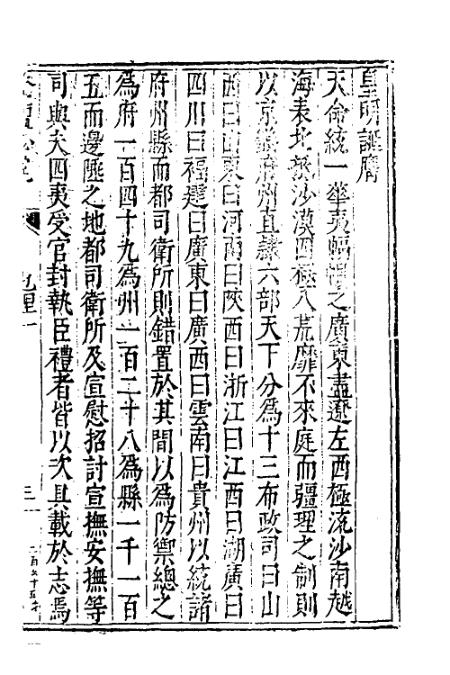 皇明誕膺
天命統一華夷幅𢄙之廣東盡遼左西極流沙南越
海表北際沙漠四極八荒靡不來庭而疆理之制則
以京畿府州直隸六部天下分為十三布政司曰山
西曰山東曰河南曰陝西曰浙江曰江西曰湖廣曰
四川曰福建曰廣東曰廣西曰雲南曰貴州以統諸
府州縣而都司衛所則錯置於其間以為防禦總之
為府一百四十九為州二百二十八為縣一千一百
五而邊陲之地都司衛所及宣慰招討宣撫安撫等
司與夫四夷受官封執臣禮者皆以次具載於志焉
地理一
三